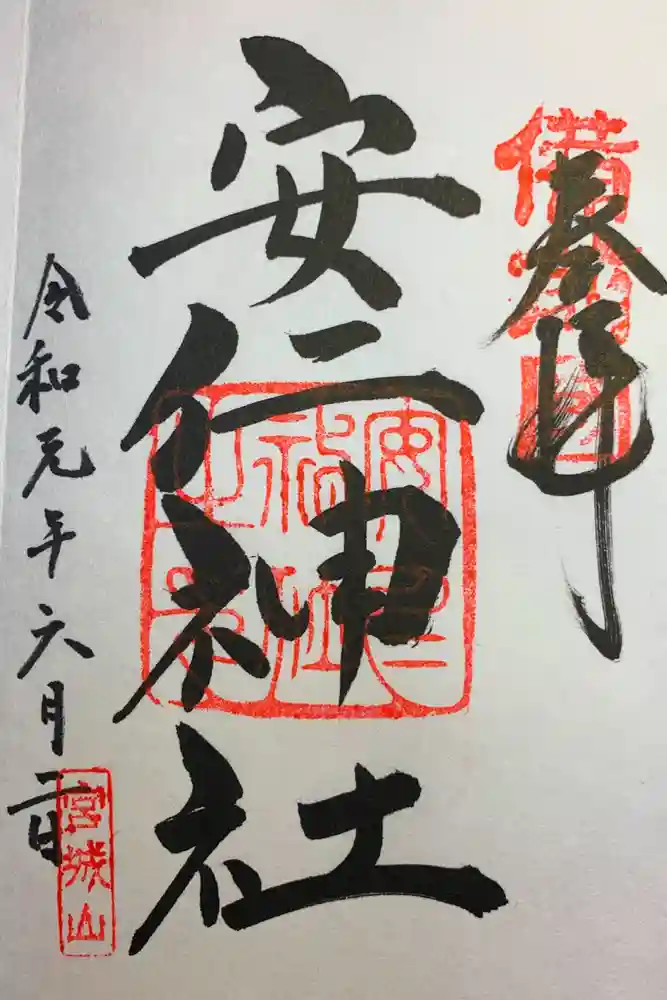 奉拝
安仁神社
令和元年六月二日
宮城山